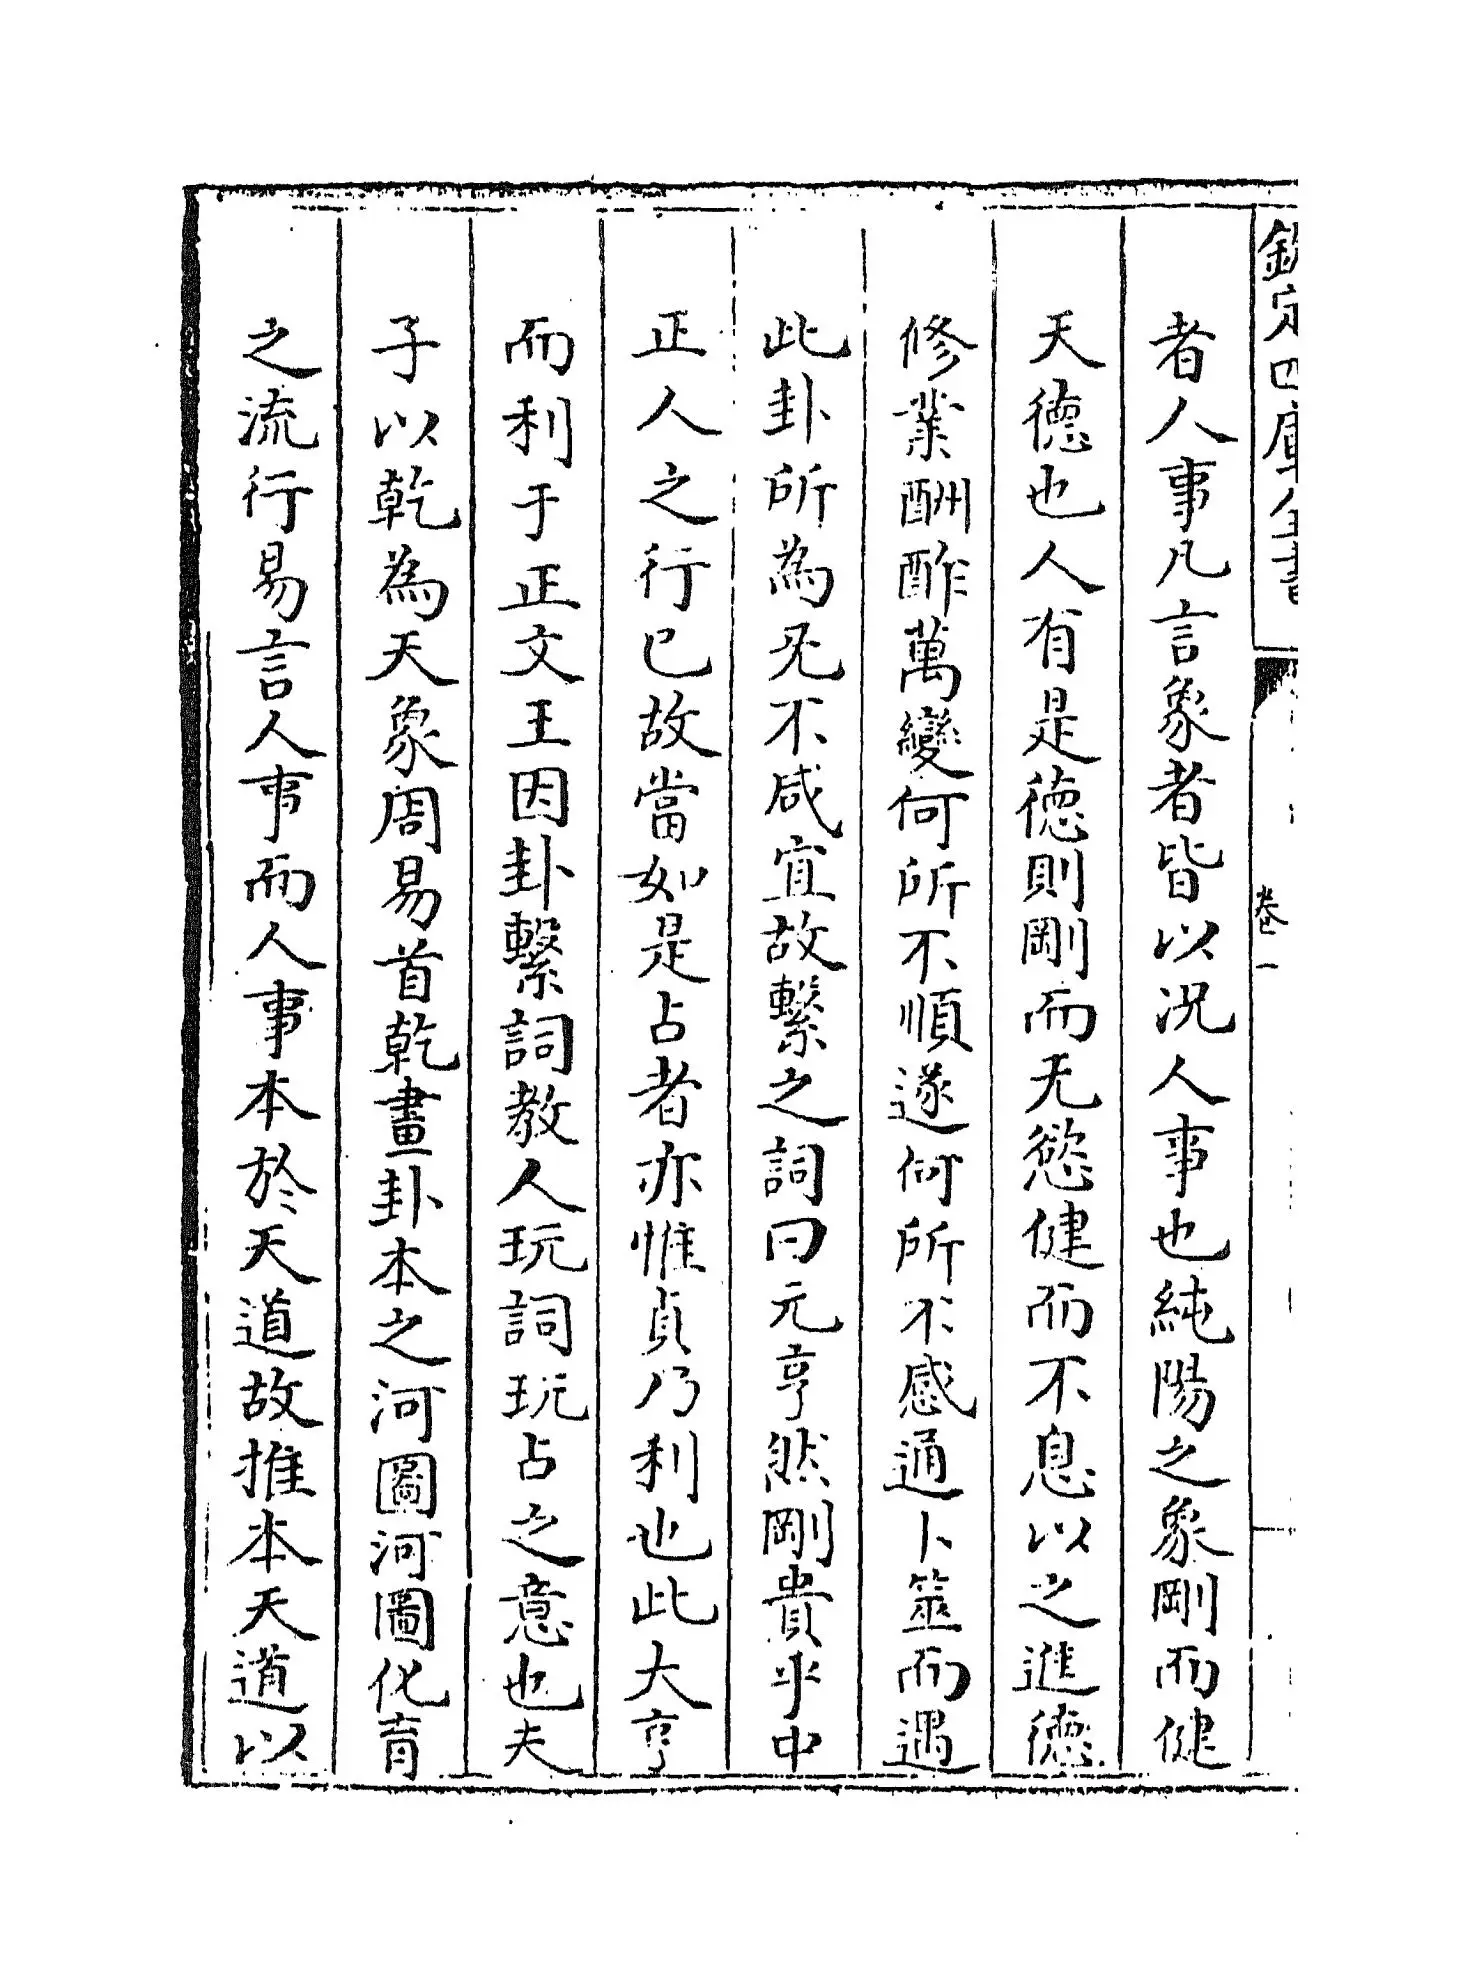 欽定四庫全書
卷一
者人事凡言象者皆以况人事也純陽之象剛而健
天德也人有是德則剛而无慾健而不息以之進德
修業酬酢萬變何所不順遂何所不感通卜筮而遇
此卦所為无不咸宜故繫之詞曰元亨然剛貴乎中
正人之行已故當如是占者亦惟貞乃利也此大亨
而利于正文王因卦繫詞教人玩詞玩占之意也夫
子以乾為天象周易首乾畫卦本之河圖河圖化育
之流行易言人事而人事本於天道故推本天道以